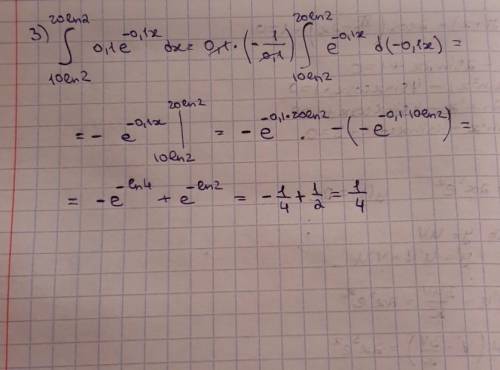 3) ∫_{10ln2}^{20ln2} 0,1e^{-0,1x} dx = 0,1·(-1/0,1) ∫_{10ln2}^{20ln2} e^{-0,1x} d(-0,1x) =
= - e^{-0,1x} |_{10ln2}^{20ln2} = - e^{-0,1·20ln2} - (-e^{-0,1·10ln2}) =
= -e^{-ln4} + e^{-ln2} = -1/4 + 1/2 = 1/4